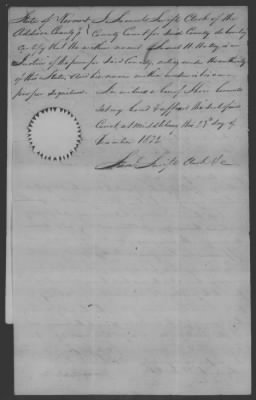 State of Vermont I Samuel Swift Clerk of the
Addison County County Court for said County do hereby
Certify that the within named H Holley is a
Justice of the peace for said County, acting under the authority
of this State, & his name within written is in his
proper Signature. In witness whereof I have hereunto
set my hand & affixed the seal of said
Court, at Middlebury this 29th day of
1832
Saml Swift Clerk